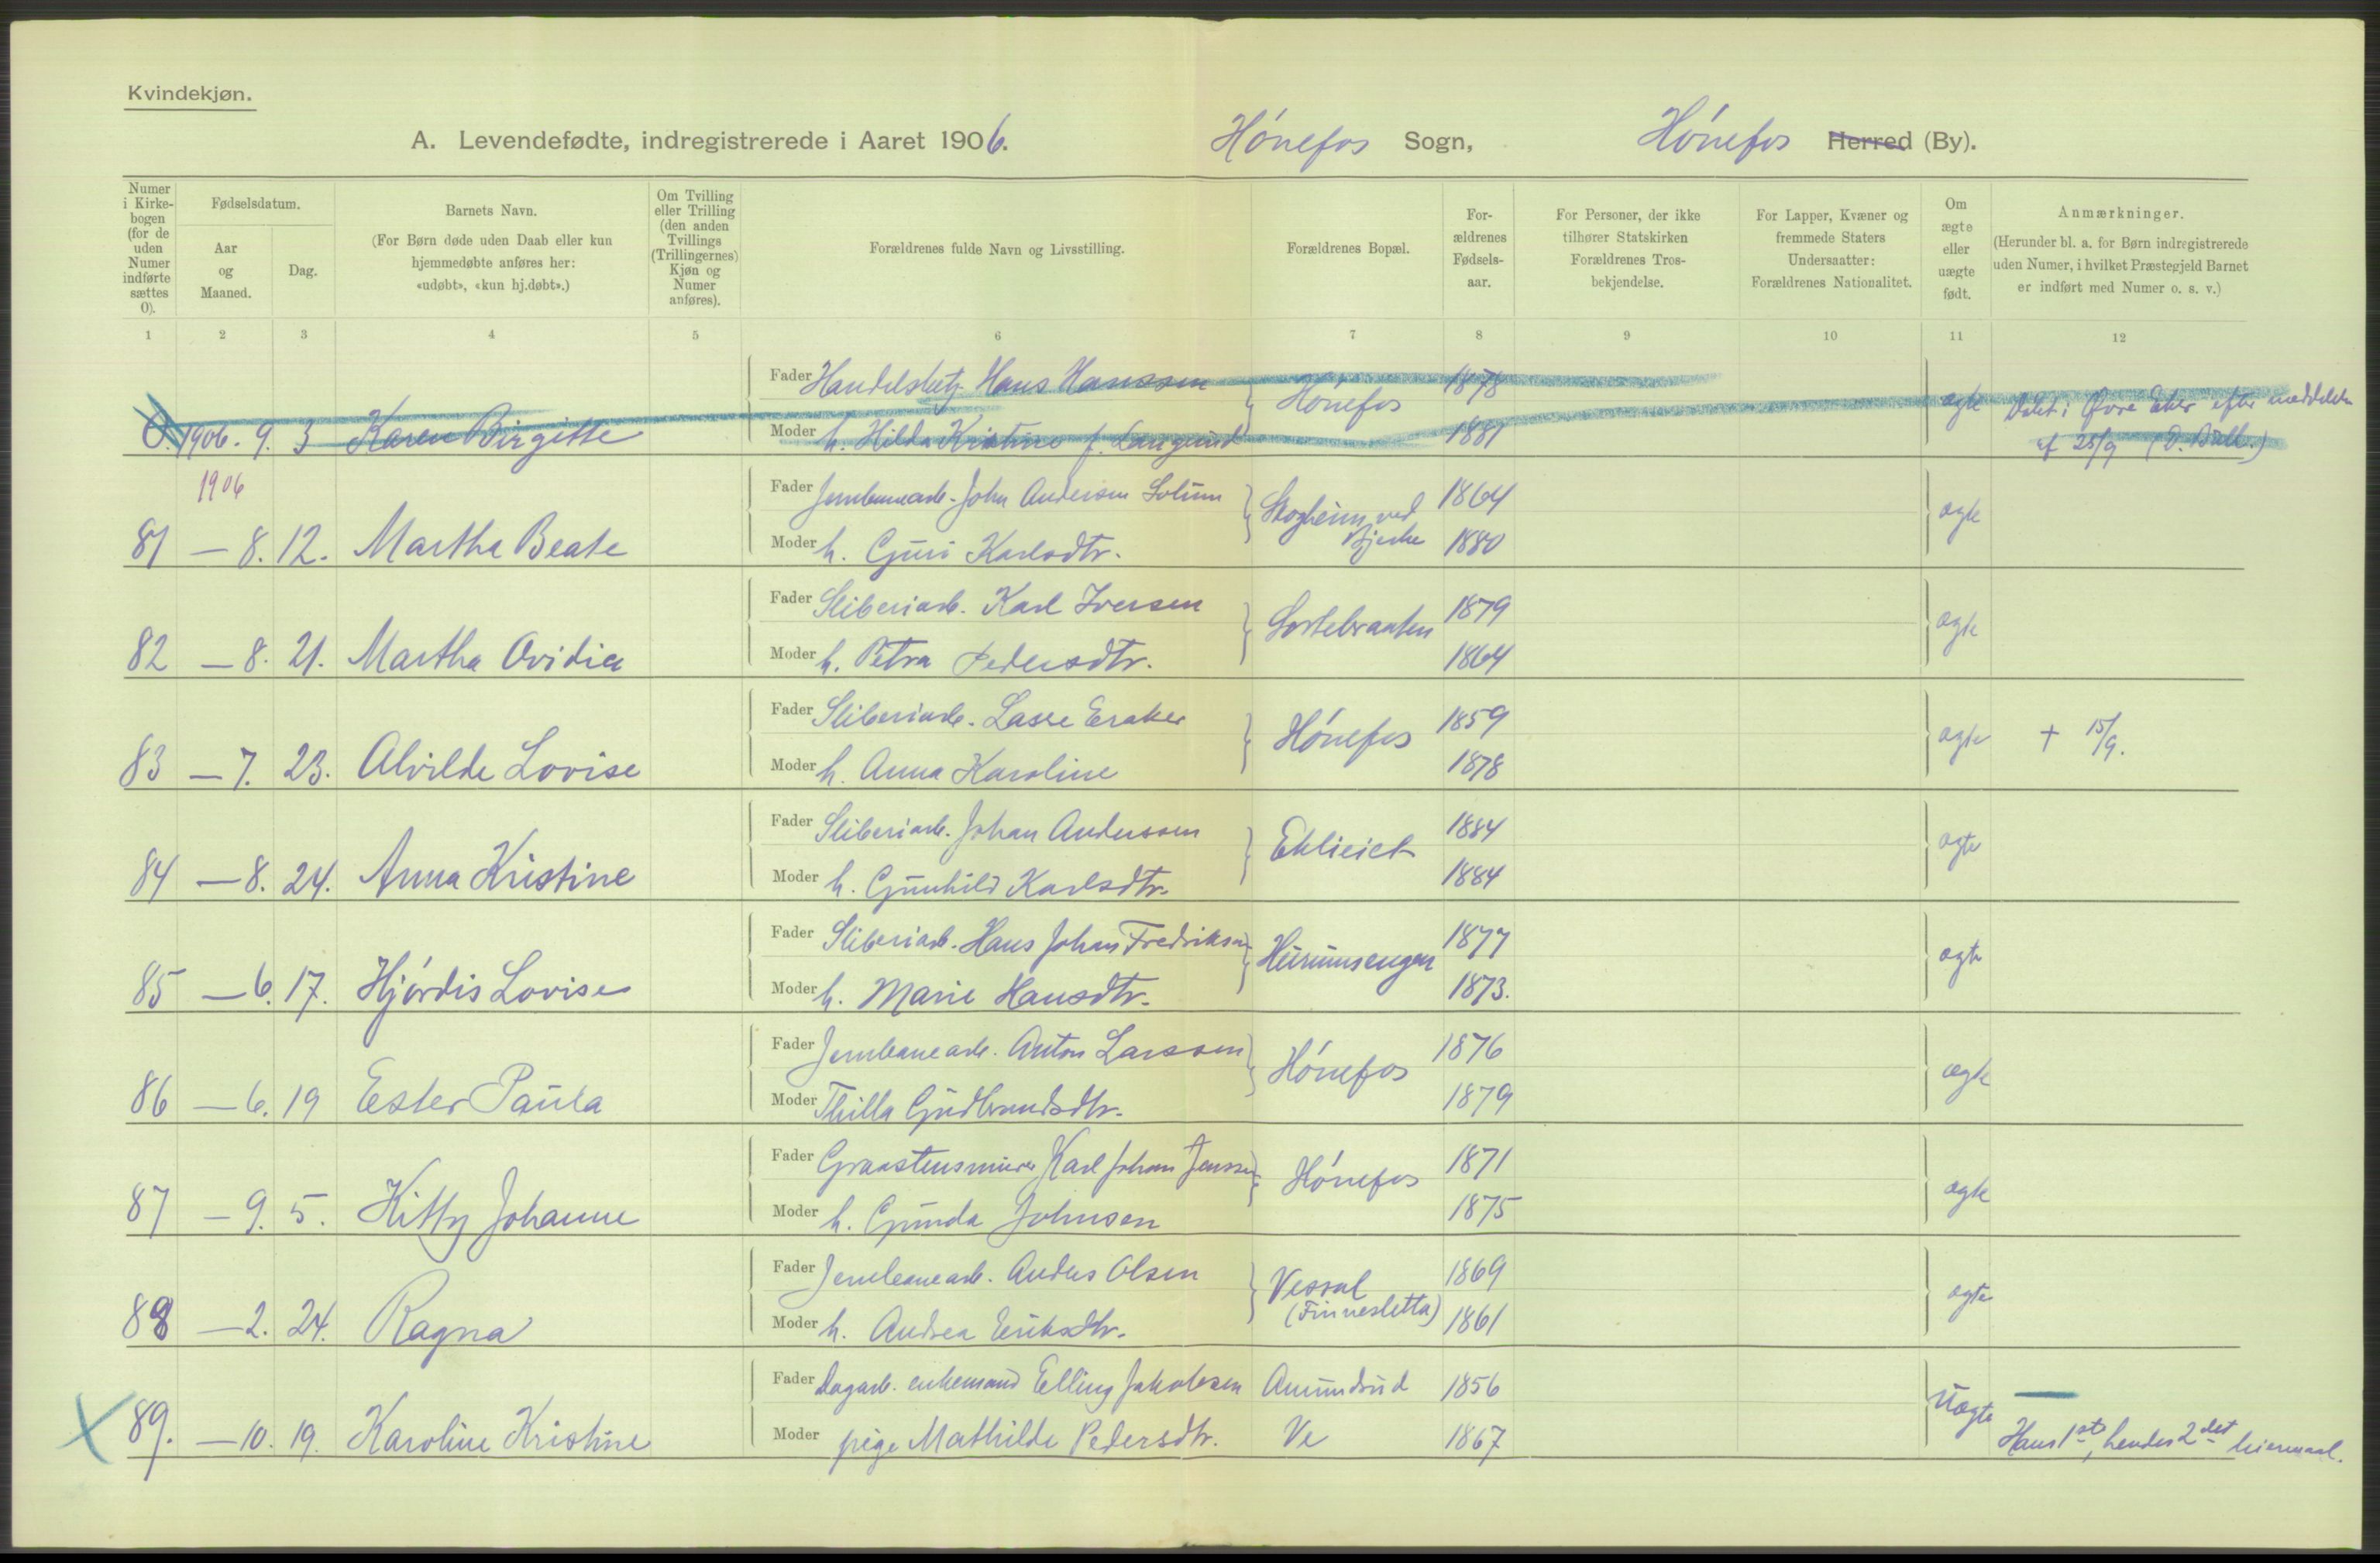 Kvindekjøn.
A. Levendefødte, indregistrerede i Aaret 1906. Hónefos Sogn, Hónefos Herred (By).
Numer i Kirkebogen (for de uden Numer indførte sættes 0).
Fødselsdatum.
Aar og Maaned.
Dag.
Barnets Navn.
(For Børn døde uden Daab eller kun hjemmedøbte anføres her: «udøbt», «kun hj.døbt».)
Om Tvilling eller Trilling (den anden Tvillings (Trillingernes) Kjøn og Numer anføres).
Forældrenes fulde Navn og Livsstilling.
Forældrenes Bopæl.
Forældrenes Fødselsaar.
For Personer, der ikke tilhører Statskirken Forældrenes Trosbekjendelse.
For Lapper, Kvæner og fremmede Staters Undersaatter: Forældrenes Nationalitet.
Om ægte eller uægte født.
Anmærkninger.
(Herunder bl. a. for Børn indregistrerede uden Numer, i hvilket Præstegjeld Barnet er indført med Numer o. s. v.)
1 2 3 4 5 6 7 8 9 10 11 12
Fader Handelsbetj. Hans Hanssen Hónefos 1878 ægte
0. 1906. 9. 3 Karen Birgitte Moder h. Hilda Kristine f. 1881 af 25/9
1906
Fader Jernbanearb. John Andersen Solum Skogheim ved Bjerke 1864 ægte
81 — 8. 12. Martha Beate Moder h. Guri Karlsdtr. 1880
Fader Sliberiarb. Karl Iversen Sortebraaten 1879 ægte
82 — 8. 21. Martha Ovidia Moder h. Petra Pedersdtr. 1864
Fader Sliberiarb. Lasse Eraker Hónefos 1859 ægte + 15/9.
83 — 7. 23. Alvilde Lovise Moder h. Anna Karoline 1878
Fader Sliberiarb. Johan Anderssen Eklieiet 1884 ægte
84 — 8. 24. Anna Kristine Moder h. Gunhild Karlsdtr. 1884
Fader Sliberiarb. Hans Johan Fredriksen Hurumsengen 1877 ægte
85 — 6. 17. Hjórdis Lovise Moder h. Marie Hansdtr. 1873.
Fader Jernbanearb. Anton Larssen Hónefos 1876 ægte
86 — 6. 19 Ester Paula Moder Thilla Gudbrandsdtr. 1879
Fader Graastensmurer Karl Johan Jenssen Hónefos 1871 ægte
87 — 9. 5. Kitty Johanne Moder h. Gunda Johnsen 1875
Fader Jernbanearb. Anders Olsen Vesral (Finnesletta) 1869 ægte
88 — 2. 24. Ragna Moder h. Andrea Eriksdtr. 1861
Fader Dagarb. enkemand Elling Jakobsen Amundrud 1856 uægte —
89. — 10. 19. Karoline Kristine Moder pige Mathilde Pedersdtr. Ve 1867 Hans 1ste, hendes 2det leiermaal.